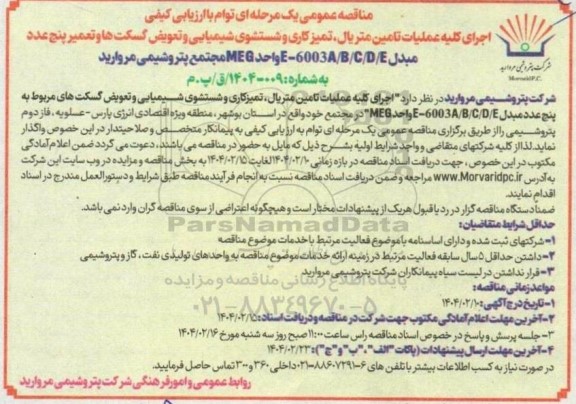 مناقصه عمومی یک مرحله ای توام باارزیابی کیفی
اجرای کلیه عملیات تامین متریال، تمیز کاری و شستشوی شیمیایی و تعویض گسکت ها و تعمیر پنج عدد
مبدل E-6003A/B/C/D/E واحد MEG مجتمع پتروشیمی مروارید
به شماره: ۱۴۰۴-۰۰۹/ق/پ.م
شرکت پتروشیمی مروارید
MorvaridP.C.
شرکت پتروشیمی مروارید در نظر دارد "اجرای کلیه عملیات تامین متریال، تمیزکاری و شستشوی شیمیایی و تعویض گسکت های مربوط به
پنج عدد مبدل E-6003A/B/C/D/E واحد MEG" در مجتمع خود واقع در استان بوشهر، منطقه ویژه اقتصادی انرژی پارس-عسلویه، فاز دوم
پتروشیمی را از طریق برگزاری مناقصه عمومی یک مرحله ای توام به ارزیابی کیفی به پیمانکار متخصص و صلاحیتدار در این خصوص واگذار
نماید. لذا از کلیه شرکتهای متقاضی و واجد شرایط اولیه بشرح ذیل که مایل به حضور در مناقصه می باشند، دعوت می گردد ضمن اعلام آمادگی
مکتوب در این خصوص، جهت دریافت اسناد مناقصه در بازه زمانی ۱۴۰۴/۰۲/۱۰ لغایت ۱۴۰۴/۰۲/۱۵ به بخش مناقصه و مزایده در وب سایت این شرکت
به آدرس www.Morvaridpc.ir مراجعه و ضمن دریافت اسناد مناقصه نسبت به انجام فرآیند مناقصه طبق شرایط و دستورالعمل مندرج در اسناد
اقدام نمایند.
ضمنا دستگاه مناقصه گزار در رد یا قبول هریک از پیشنهادات مختار است و هیچگونه اعتراضی از سوی مناقصه گران وارد نمی باشد.
حداقل شرایط متقاضیان:
۱-شرکتهای ثبت شده و دارای اساسنامه با موضوع فعالیت مرتبط با خدمات موضوع مناقصه
۲-داشتن حداقل ۵ سال سابقه فعالیت مرتبط در زمینه ارائه خدمات موضوع مناقصه به واحدهای تولیدی نفت، گاز و پتروشیمی
۳-قرار نداشتن در لیست سیاه پیمانکاران شرکت پتروشیمی مروارید
مواعد زمانی مناقصه:
۱-تاریخ درج آگهی: ۱۴۰۴/۰۲/۱۰
۲-آخرین مهلت اعلام آمادگی مکتوب جهت شرکت در مناقصه و دریافت اسناد: ۱۴۰۴/۰۲/۱۵
۳-جلسه پرسش و پاسخ در خصوص اسناد مناقصه راس ساعت ۱۱:۰۰ صبح روز سه شنبه مورخ ۱۴۰۴/۰۲/۱۶
۴-آخرین مهلت ارسال پیشنهادات (پاکات "الف"، "ب" و "ج"): ۱۴۰۴/۰۲/۲۳
در صورت نیاز به کسب اطلاعات بیشتر با تلفن های ۶-۰۲۱-۸۸۶۰۷۲۹۱ داخلی ۳۶۰ و ۳۰۰ تماس حاصل فرمایید.
روابط عمومی و امور فرهنگی شرکت پتروشیمی مروارید
ParsNamadData
پایگاه اطلاع رسانی مناقصه و مزایده
۰۲۱-۸۸۳۴۹۶۷۰-۵